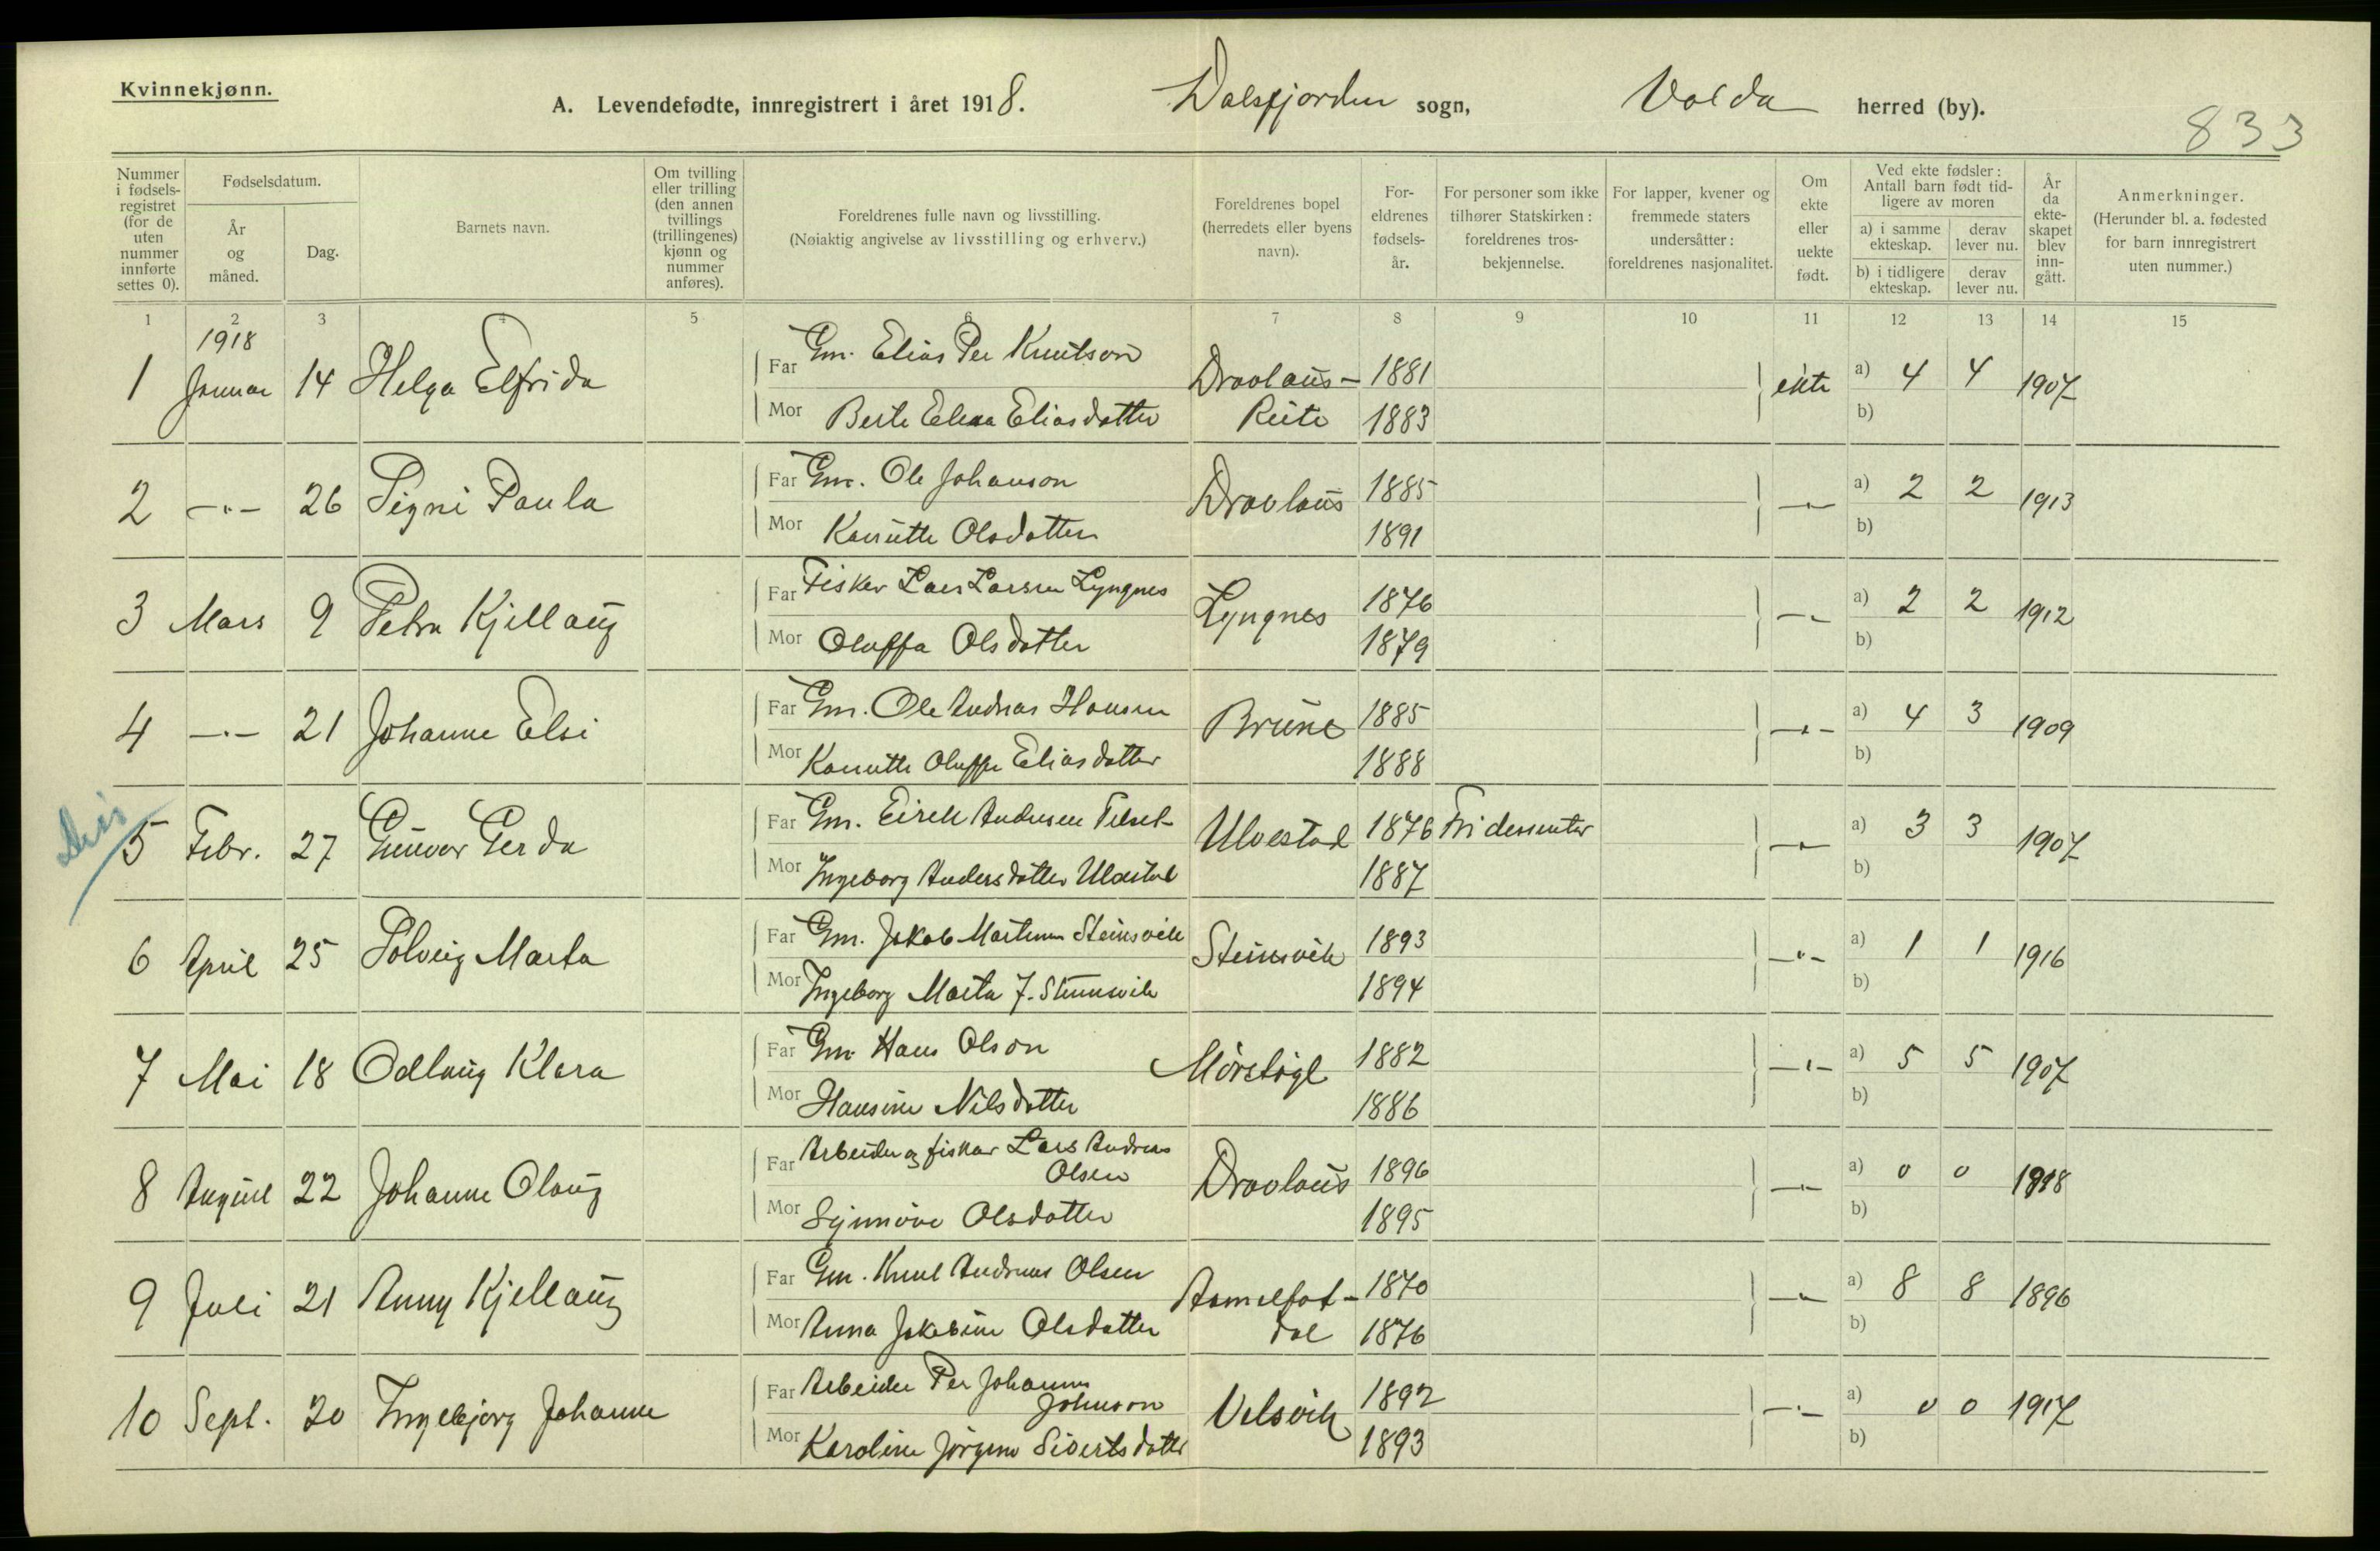 Kvinnekjønn.
A. Levendefødte, innregistrert i året 1918. Dalsfjorden sogn, Volda herred (by).
833
Nummer i fødsels-registret (for de uten nummer innførte settes 0).
Fødselsdatum.
År og måned.
Dag.
Barnets navn.
Om tvilling eller trilling (den annen tvillings (trillingenes) kjønn og nummer anføres).
Foreldrenes fulle navn og livsstilling.
(Nøiaktig angivelse av livsstilling og erhverv.)
Foreldrenes bopel (herredets eller byens navn).
For-eldrenes fødsels-år.
For personer som ikke tilhører Statskirken: foreldrenes tros-bekjennelse.
For lapper, kvener og fremmede staters undersåtter: foreldrenes nasjonalitet.
Om ekte eller uekte født.
Ved ekte fødsler: Antall barn født tid-ligere av moren
a) i samme ekteskap.
derav lever nu.
b) i tidligere ekteskap.
derav lever nu.
År da ekte-skapet blev inn-gått.
Anmerkninger.
(Herunder bl. a. fødested for barn innregistrert uten nummer.)
1 2 3 4 5 6 7 8 9 10 11 12 13 14 15
1918
1 Januar 14 Helga Elfrida Far Gm. Elias Per Knutson Dravlaus- 1881 ekte a) 4 4 1907
Mor Berte Elena Eliasdatter Reite 1883 b)
2 -"- 26 Signi Paula Far Gm. Ole Johanson Dravlaus 1885 -"- a) 2 2 1913
Mor Karutte Olsdatter 1891 b)
3 Mars 9 Petra Kjellaug Far Fisker Lars Larsen Lyngnes Lyngnes 1876 -"- a) 2 2 1912
Mor Oluffa Olsdatter 1879 b)
4 -"- 21 Johanne Elsi Far Gm. Ole Andreas Hansen Brune 1885 -"- a) 4 3 1909
Mor Oluffa Eliasdatter 1888 b)
5 Febr. 27 Gunvor Gerda Far Gm. Eirik Andersen Ulvestad 1876 Fri dessenter -"- a) 3 3 1907
Mor Ingeborg Andersdatter Ulvestad 1887 b)
6 April 25 Solveig Marta Far Gm. Jakob Martinus Steinsvik Steinsvik 1893 -"- a) 1 1 1916
Mor Ingeborg Marta J. Steinsvik 1894 b)
7 Mai 18 Odlaug Klara Far Gm. Hans Olson Mørstøgl 1882 -"- a) 5 5 1907
Mor Hansine Nilsdatter 1886 b)
8 August 22 Johanne Olaug Far Arbeider og fisker Lars Andreas
Olsen Dravlaus 1896 -"- a) 0 0 1918
Mor Synnøve Olsdatter 1895 b)
9 Juli 21 Anny Kjellaug Far Gm. Knut Andreas Olsen Aamelfot- 1870 -"- a) 8 8 1896
Mor Anna Jakobine Olsdatter dal 1876 b)
10 Sept. 20 Ingebjørg Johanne Far Arbeider Per Johannes
Johnson Velsvik 1892 -"- a) 0 0 1917
Mor Karoline Jørgine Sivertsdatter 1893 b)